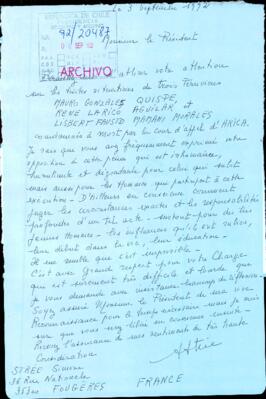 le 3 Septembre 1992
REPUBLICA DE CHILE
92/20487
ARCHIVO
Monsieur le Président
attirer votre attention
sur les tristes situations de trois Péruviens
MAURO GONZALES QUISPE,
RENE LARICO AGUILAR et
LISBERT FAUSTO MAMANI MORALES
condamnés à mort par la Cour d'appel d'ARICA.
Je sais que vous avez fréquemment exprimé votre
opposition à cette peine qui est inhumaine,
humiliante et dégradante pour celui qui subit
mais aussi pour les Hommes qui participent à cette
exécution. D'Ailleurs en conscience comment
juger les circonstances exactes et les responsabilités
profondes d'un tel acte - surtout pour des très
jeunes Hommes - les souffrances qu'ils ont subies,
leur début dans la vie, leur éducation -
Il me semble que c'est impossible -
C'est avec Grand respect pour votre Charge
qui est sûrement très difficile et lourde que
je vous demande avec insistance
Soyez assuré Monsieur le Président de ma vive
Reconnaissance
sûre que vous en conscience
Recevez l'assurance de mes sentiments de très haute
Considération
STREE Simone
36 Rue Nationale
35300 FOUGÈRES FRANCE